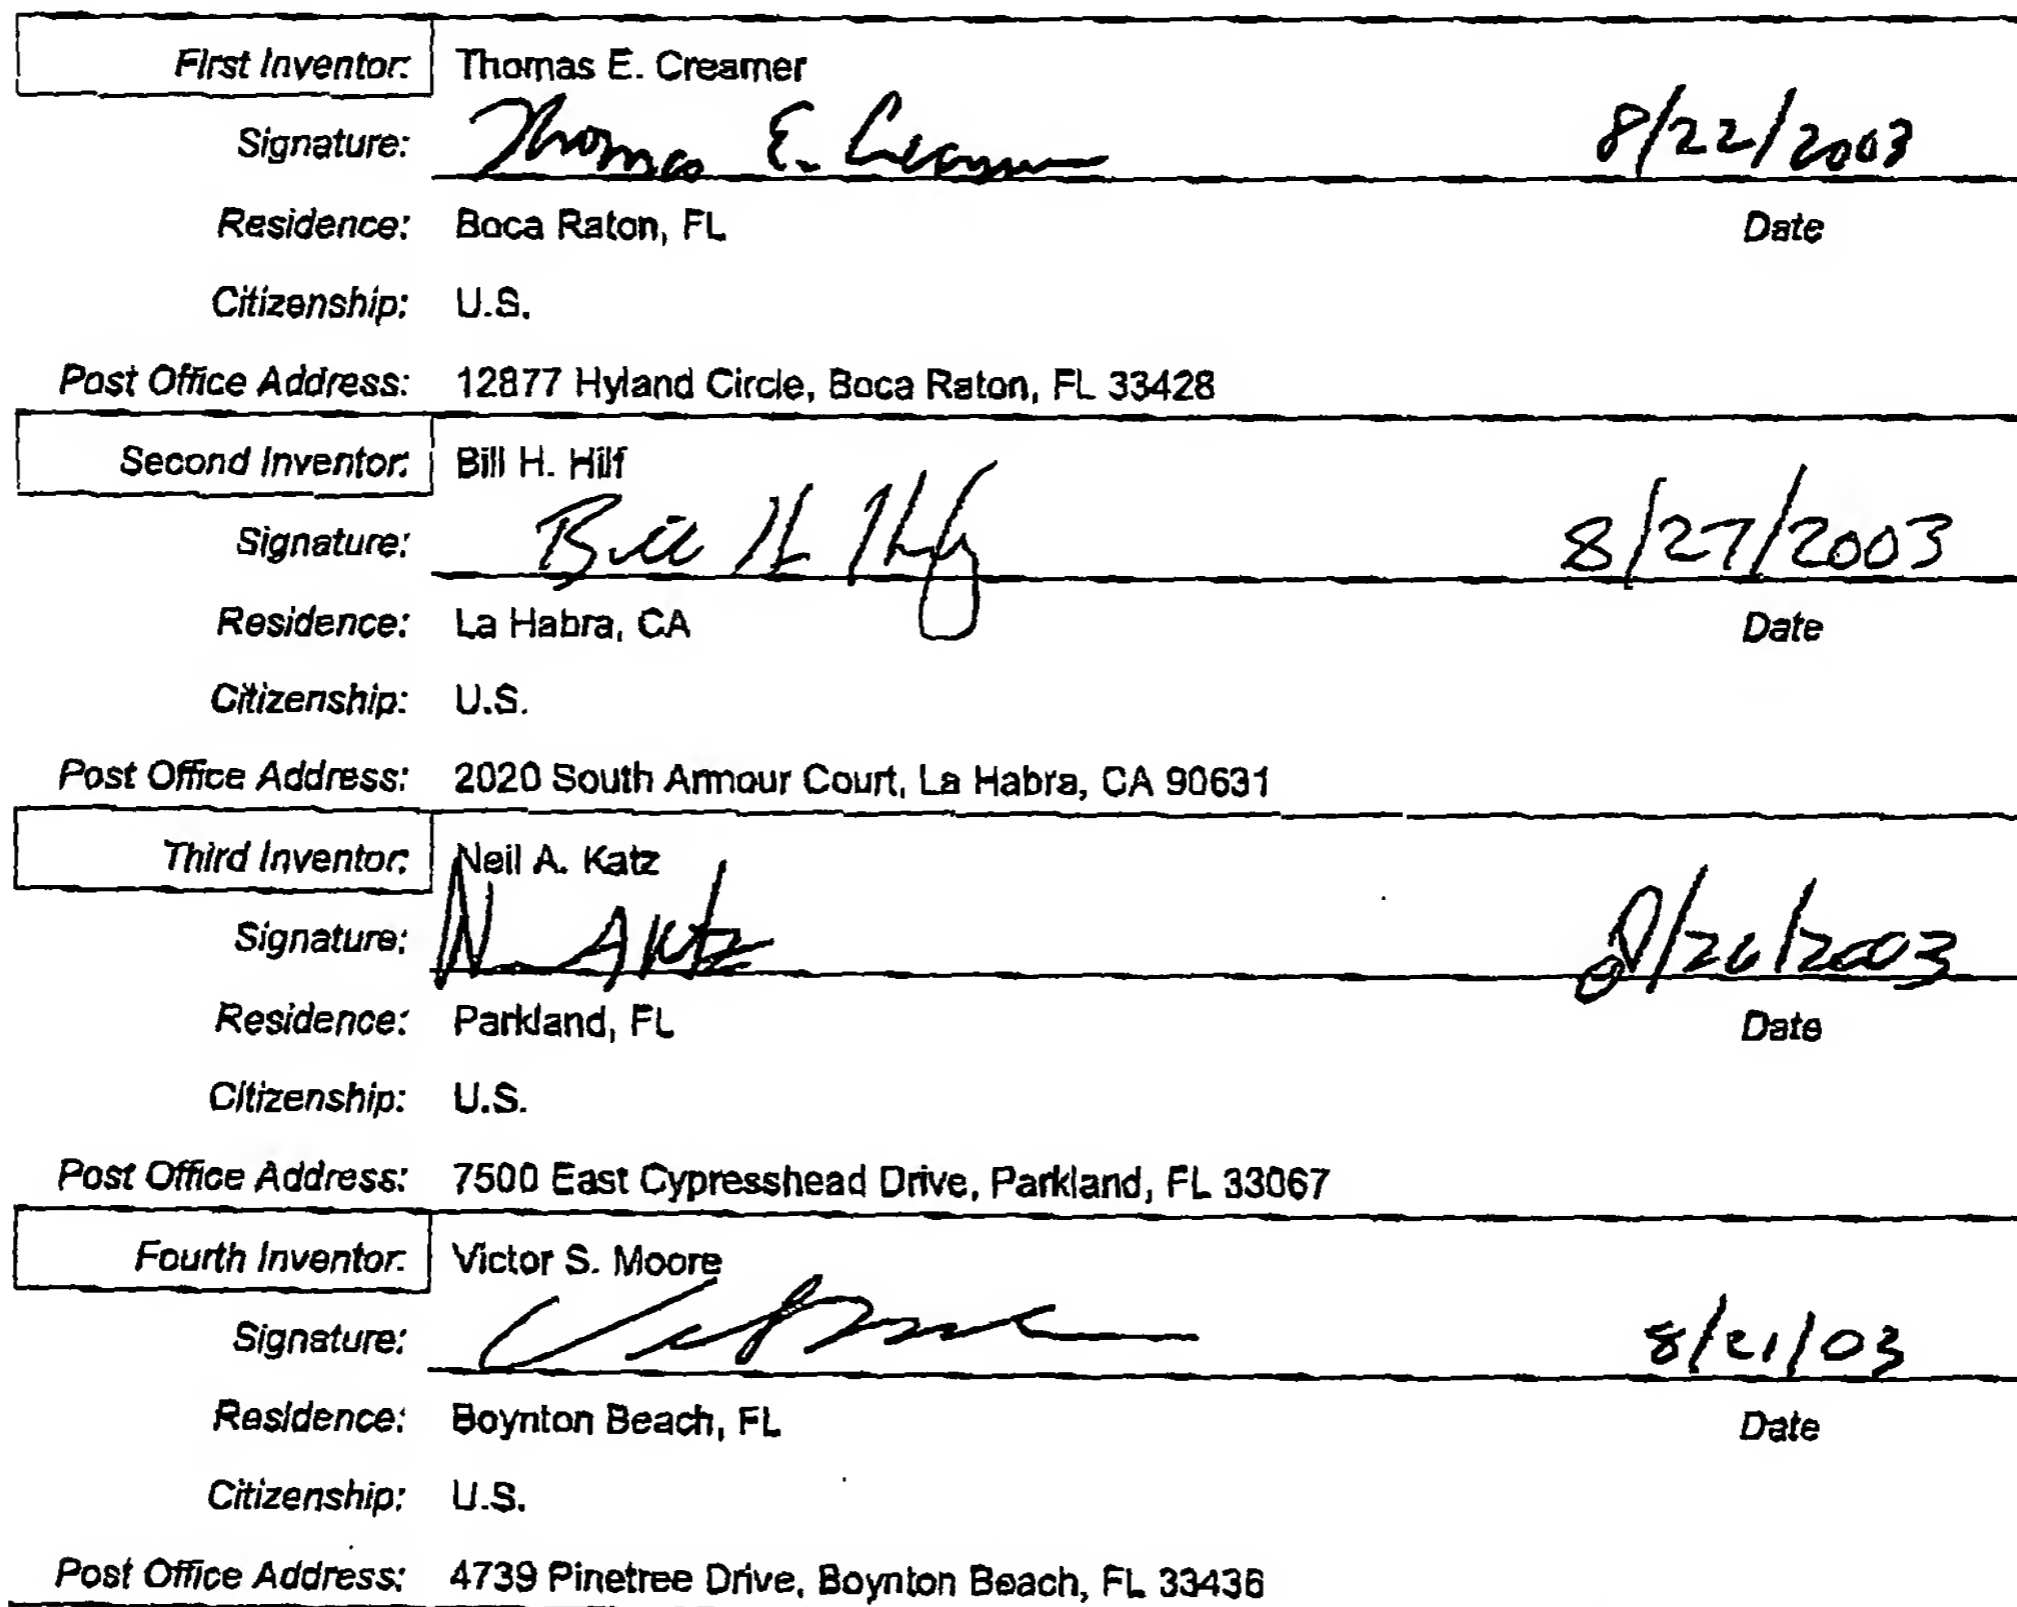 First Inventor: Thomas E. Creamer
Signature: Thomas E. Creamer 8/22/2003
Residence: Boca Raton, FL Date
Citizenship: U.S.
Post Office Address: 12877 Hyland Circle, Boca Raton, FL 33428
Second Inventor: Bill H. Hilf
Signature: Bill H Hilf 8/27/2003
Residence: La Habra, CA Date
Citizenship: U.S.
Post Office Address: 2020 South Armour Court, La Habra, CA 90631
Third Inventor: Neil A. Katz
Signature: N A Katz 8/26/2003
Residence: Parkland, FL Date
Citizenship: U.S.
Post Office Address: 7500 East Cypresshead Drive, Parkland, FL 33067
Fourth Inventor: Victor S. Moore
Signature: 8/21/03
Residence: Boynton Beach, FL Date
Citizenship: U.S.
Post Office Address: 4739 Pinetree Drive, Boynton Beach, FL 33436